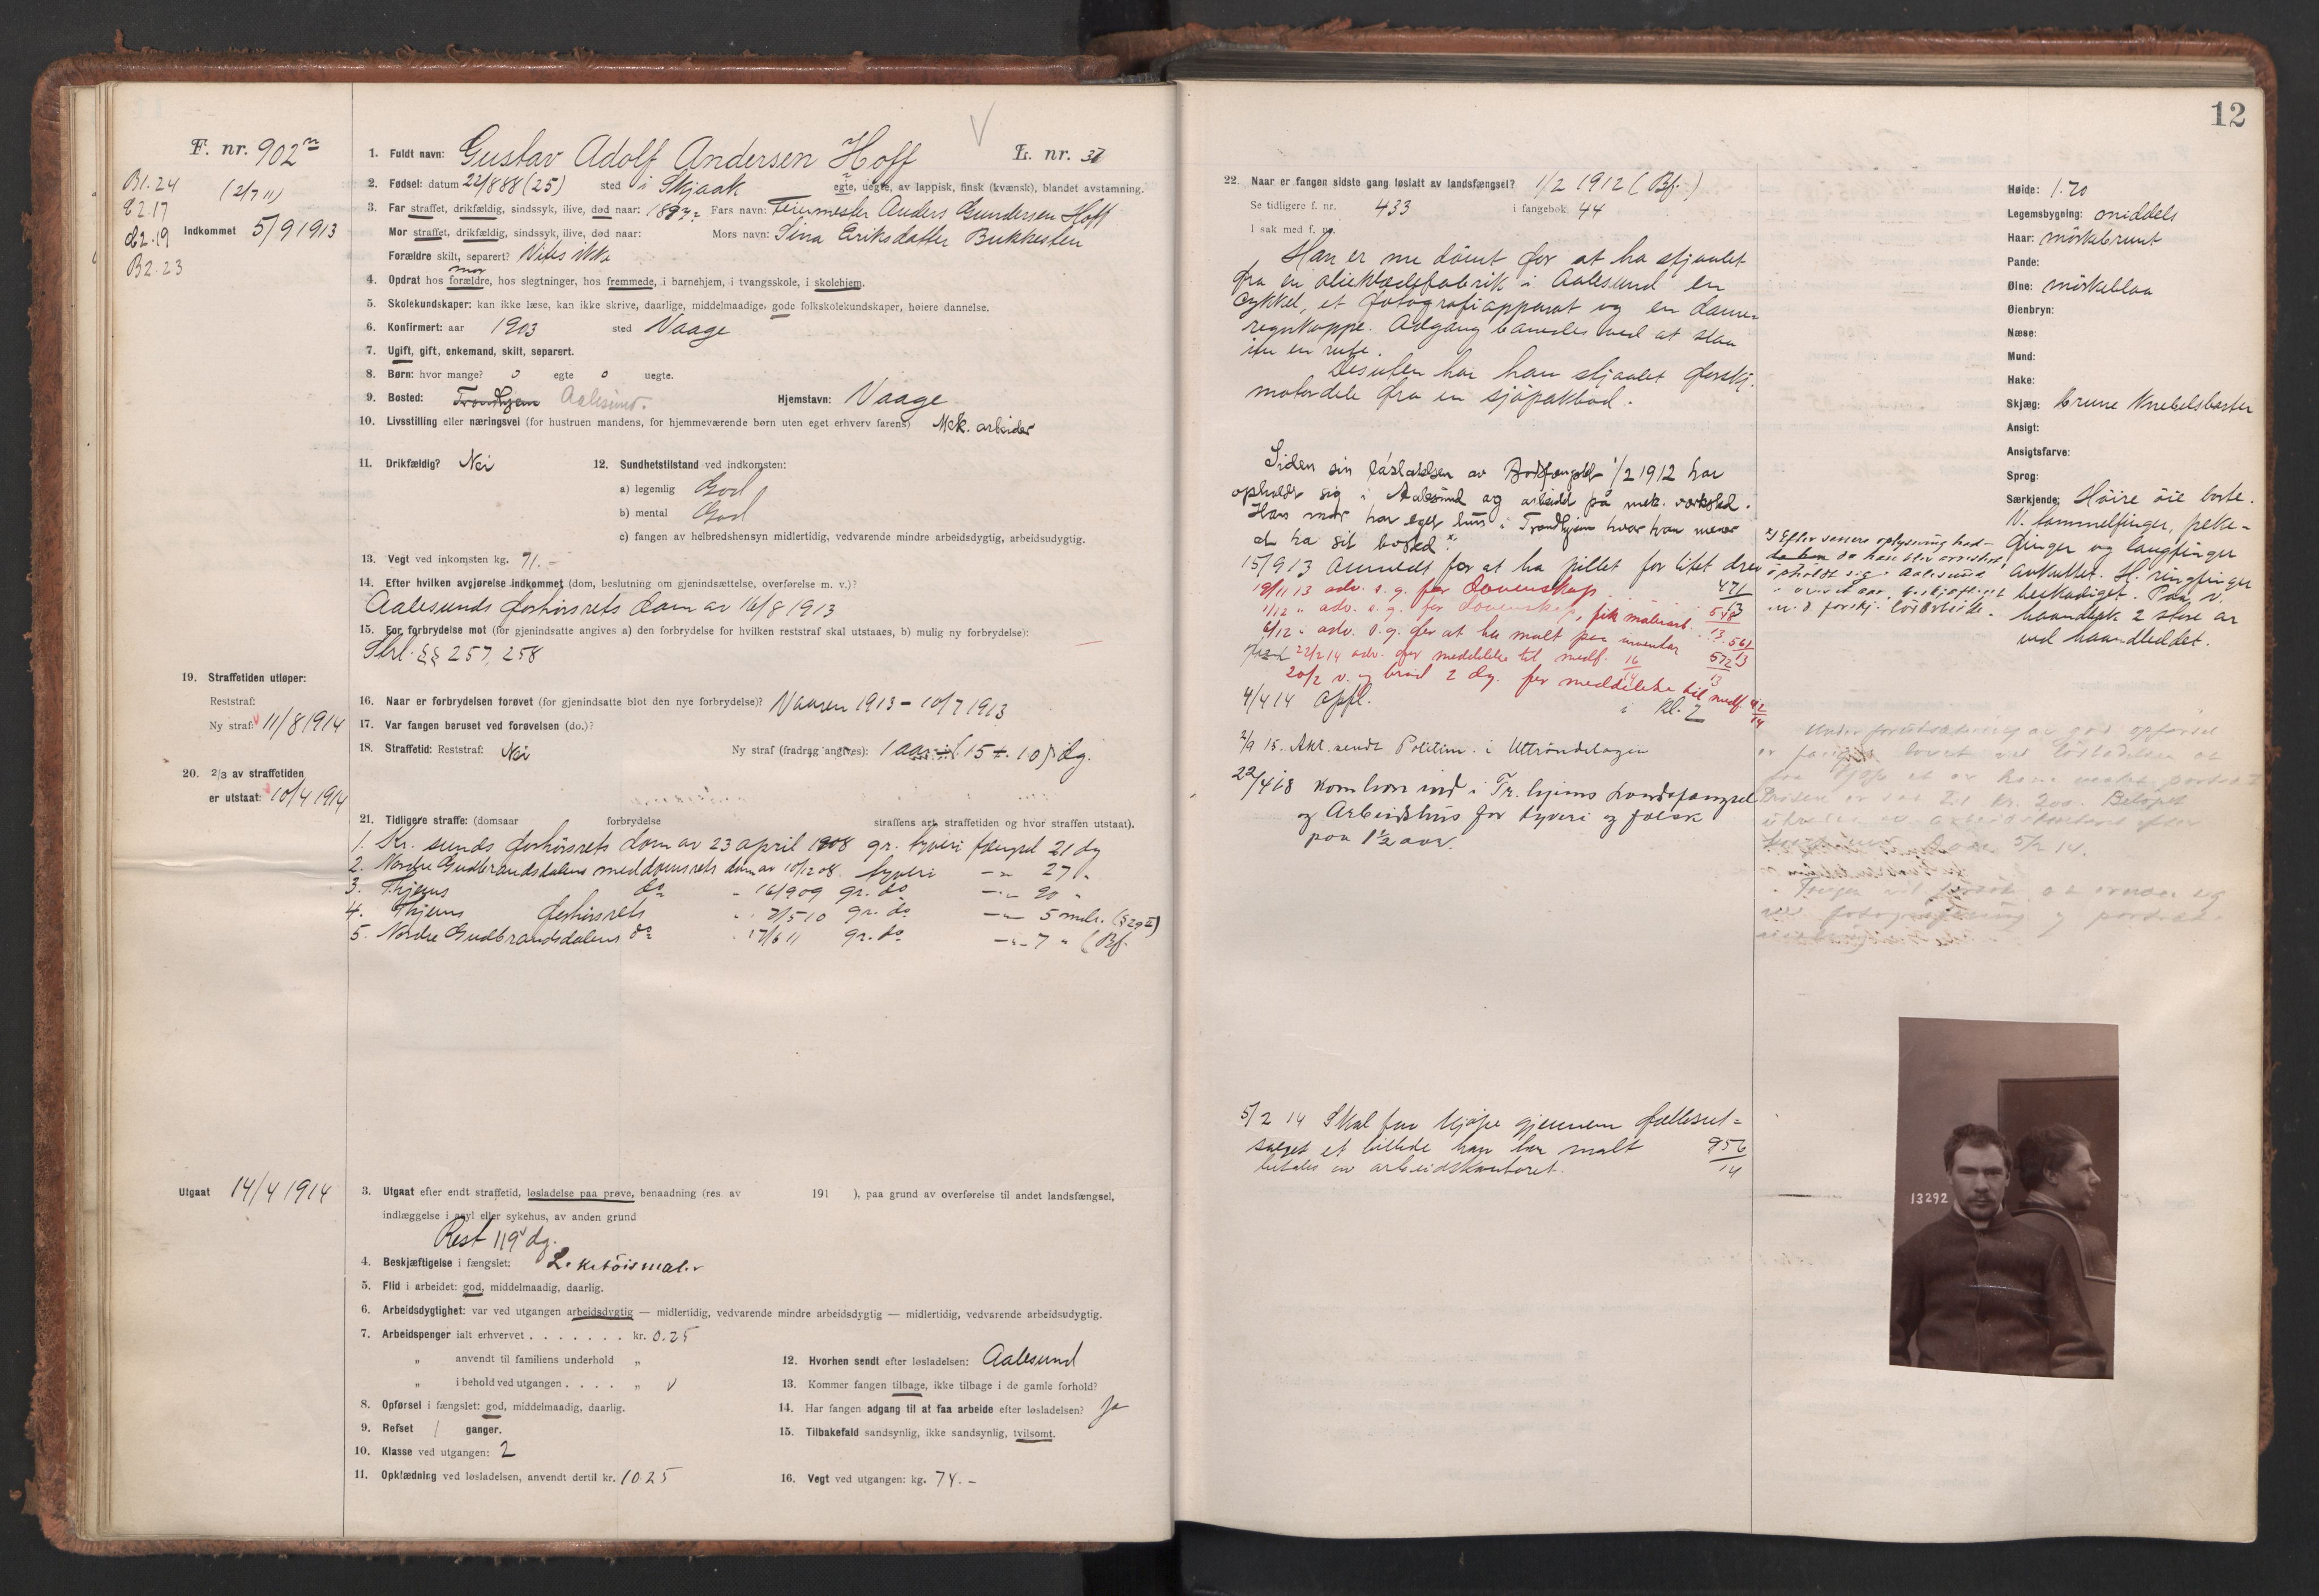 F. nr. 902
B1.24
(2/7 11)
B2.17
B2.19
B2.23
Indkommet 5/9 1913
1. Fuldt navn: Gustav Adolf Andersen Hoff L. nr. 37
2. Fødsel: datum 22/8 88 (25) sted i Skjaak egte, uegte, av lappisk, finsk (kvænsk), blandet avstamning.
3. Far straffet, drikfældig, sindssyk, ilive, død naar: Fars navn: Anders Gundersen Hoff
Mor straffet, drikfældig, sindssyk, ilive, død naar: Mors navn: Eriksdatter Bukkesten
Forældre skilt, separert? Vites ikke
mor
4. Opdrat hos forældre, hos slegtninger, hos fremmede, i barnehjem, i tvangsskole, i skolehjem.
5. Skolekundskaper: kan ikke læse, kan ikke skrive, daarlige, middelmaadige, gode folkskolekundskaper, høiere dannelse.
6. Konfirmert: aar 1903 sted Vaage
7. Ugift, gift, enkemand, skilt, separert.
8. Børn: hvor mange? 0 egte 0 uegte.
9. Bosted: Trondhjem Aalesund. Hjemstavn: Vaage
10. Livsstilling eller næringsvei (for hustruen mandens, for hjemmeværende børn uten eget erhverv farens) Mek. arbeider
11. Drikfældig? Nei 12. Sundhetstilstand ved indkomsten:
a) legemlig God
b) mental God
c) fangen av helbredshensyn midlertidig, vedvarende mindre arbeidsdygtig, arbeidsudygtig.
13. Vegt ved inkomsten kg. 71.-
14. Efter hvilken avgjørelse indkommet (dom, beslutning om gjenindsættelse, overførelse m. v.)?
Aalesunds forhørsrets dom av 16/8 1913
15. For forbrydelse mot (for gjenindsatte angives a) den forbrydelse for hvilken reststraf skal utstaaes, b) mulig ny forbrydelse):
Strl. §§ 257, 258
19. Straffetiden utløper:
Reststraf:
Ny straf: 11/8 1914
16. Naar er forbrydelsen forøvet (for gjenindsatte blot den nye forbrydelse)? Vaaren 1913 – 10/7 1913
17. Var fangen beruset ved forøvelsen (do.)?
18. Straffetid: Reststraf: Nei Ny straf (fradrag angives): 1 aar ÷ (15 + 10) dg.
20. 2/3 av straffetiden
er utstaat: 10/4 1914
21. Tidligere straffe: (domsaar forbrydelse straffens art, straffetiden og hvor straffen utstaat).
1. Kr. sunds forhørsrets dom av 23 april 1908 gr. tyveri fængsel 21 dg
2. Nordre Gudbrandsdalens meddomsrets dom av 10/12 08. tyveri -"- 27 "
3. Thjems do " 16/9 09 gr. do -"- 90 "
4. Thjems forhørsrets " 2/5 10 gr. do -"- 5 mdr. (§ 29 II)
5. Nordre Gudbrandsdalens do " 17/6 11 gr. do -"- 7 " (Bf.
Utgaat 14/4 1914
3. Utgaat efter endt straffetid, løsladelse paa prøve, benaadning (res. av 191 ), paa grund av overførelse til andet landsfængsel,
indlæggelse i asyl eller sykehus, av anden grund
Rest 119 dg.
4. Beskjæftigelse i fængslet: Leketöismaler
5. Flid i arbeidet: god, middelmaadig, daarlig.
6. Arbeidsdygtighet: var ved utgangen arbeidsdygtig — midlertidig, vedvarende mindre arbeidsdygtig — midlertidig, vedvarende arbeidsudygtig.
7. Arbeidspenger ialt erhvervet . . . . . . . kr. 0.25
„ anvendt til familiens underhold „
„ i behold ved utgangen . . . . „
8. Opførsel i fængslet: god, middelmaadig, daarlig.
9. Refset 1 ganger.
10. Klasse ved utgangen: 2
11. Opklædning ved løsladelsen, anvendt dertil kr. 10.25
12. Hvorhen sendt efter løsladelsen: Aalesund
13. Kommer fangen tilbage, ikke tilbage i de gamle forhold?
14. Har fangen adgang til at faa arbeide efter løsladelsen? Ja
15. Tilbakefald sandsynlig, ikke sandsynlig, tvilsomt.
16. Vegt ved utgangen: kg. 74.-
12
22. Naar er fangen sidste gang løslatt av landsfængsel? 1/2 1912 (Bf.)
Se tidligere f. nr. 433 i fangebok 44
I sak med f. nr.
Han er nu dömt for at ha stjaalet
fra en olieklædefabrik i Aalesund en
cykkel, et fotografiapparat og en dame-
regnkappe. Adgang banedes ved at slaa
ind en rute.
Desuten har han stjaalet forskj.
motordele fra en sjöpakbod.
Siden sin löslatelse av Bodsfængslet 1/2 1912 har
opholdt sig i Aalesund og arbeidet på mek. verksted.
Hans mor har eget hus i Trondhjem hvor han mener
at ha sit bosted. x
15/9 13 Anmeldt for at ha pillet for litet drev 471/13
19/11 13 adv. s. g. for dovenskap
1/12 " adv. s. g. for dovenskap, fik malerarb. 548/13
6/12 " adv. s. g. for at ha malt paa inventar 561/13
22/2 14 adv. for meddelelse til medf. 16/14
20/2 v. og bröd 2 dg. for meddelelse til medf. 42/14
4/4 14 Oppl. i kl. 2
2/9 15. Akt. sendt Politim. i Uttröndelagen
22/4 18 kom han ind i Tr.hjems Landsfængsel
og Arbeidshus for tyveri og falsk
paa 1½ aar.
5/2 14 Skal faa kjöpe gjennem fællesut-
salget et billede han har malt 956/14
betales av arbeidskontoret.
Høide: 1.70
Legemsbygning: middels
Haar: mörkebrunt
Pande:
Øine: mörkeblaa
Øienbryn:
Næse:
Mund:
Hake:
Skjæg: brune Knebelsbarter
Ansigt:
Ansigtsfarve:
Sprog:
Særkjende: Höire öie borte.
V. tommelfinger, peke-
finger og langfinger
avkuttet. H. ringfinger
beskadiget. Paa v.
haandbak 2 store ar
ved haandleddet.
x) Efter senere oplysning had-
de han da han blev arrestert
opholdt sig i Aalesund
forskj. lösarbeide.
13292